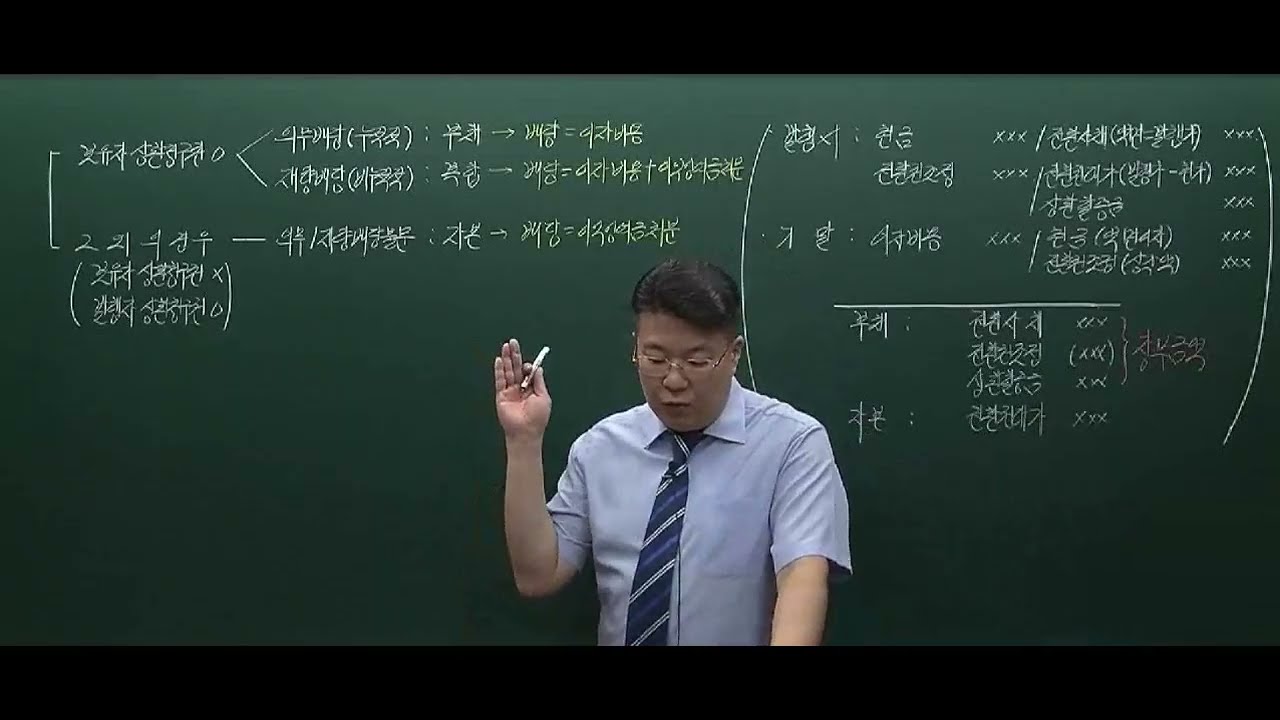 보유자 상환청구권 O
의무배당(누적적) : 부채 → 배당 = 이자비용
재량배당(비누적적) : 복합 → 배당 = 이자비용 + 이익잉여금처분
그 외 의 경우 — 의무/재량배당불문 : 자본 → 배당 = 이익잉여금처분
(보유자 상환청구권 X
발행자 상환청구권 O)
발행시 : 현금 xxx / 전환사채(액면=발행가) xxx
전환권조정 xxx / 전환권대가(발행가 - 현가) xxx
상환할증금 xxx
· 기 말 : 이자비용 xxx / 현금(액면이자) xxx
전환권조정(상각액) xxx
부채 : 전환사채 xxx
전환권조정 (xxx)
상환할증금 xxx
} 장부금액
자본 : 전환권대가 xxx